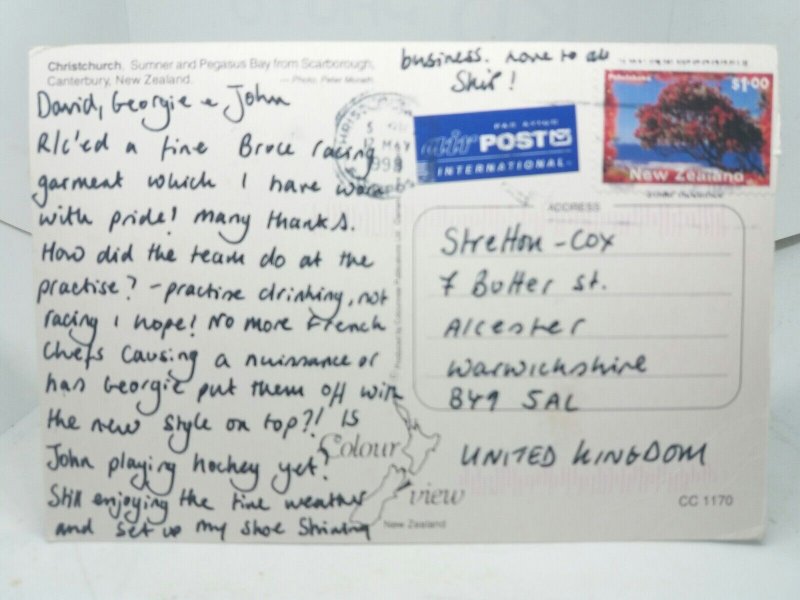 Christchurch. Sumner and Pegasus Bay from Scarborough,
Canterbury, New Zealand.
— Photo, Peter Morath
David, Georgie & John
R/c'ed a fine Bruce racing
garment which I have worn
with pride! Many thanks.
How did the team do at the
practise? – practise drinking, not
racing I hope! No more French
Chefs causing a nuissance or
has Georgie put them off with
the new style on top?! Is
John playing hockey yet?
Still enjoying the fine weather
and set up my shoe shining
business. Love to all
Skip!
12 MAY
1998
PAR AVION
air POST
INTERNATIONAL
Pohutukawa
$1.00
New Zealand
ADDRESS
Stretton-Cox
7 Butter St.
Alcester
Warwickshire
B49 5AL
UNITED KINGDOM
Colour
view
New Zealand
CC 1170